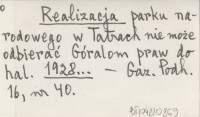 Realizacja parku na-
rodowego w Tatrach nie może
odbierać Góralom praw do
hal. 1928... – Gaz. Podh.
16, nr 40.